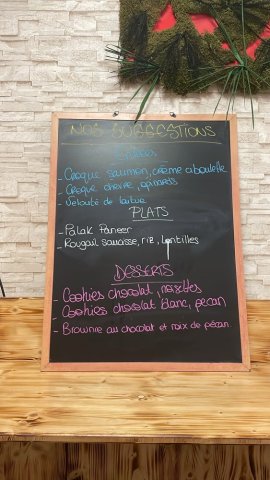 NOS SUGGESTIONS
Entrées
- Croque saumon, crème ciboulette
- Croque chèvre, épinards
- Velouté de laitue
PLATS
- Palak Paneer
- Rougail saucisse, riz, lentilles
DESSERTS
- Cookies chocolat, noisettes
- Cookies chocolat blanc, pecan
- Brownie au chocolat et noix de pécan